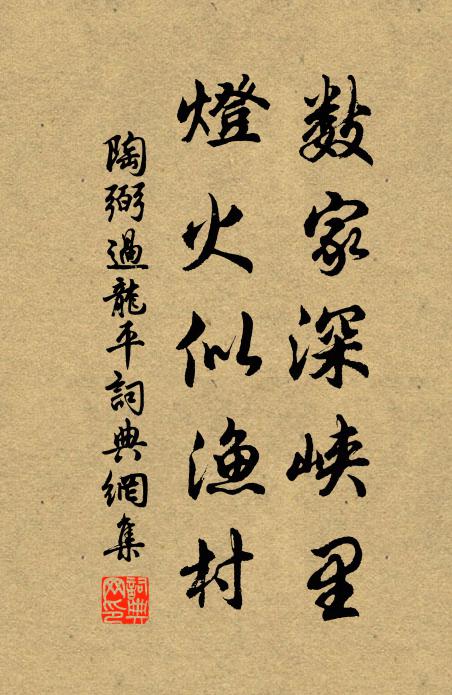 数家深峡里
燈火似漁村
陶弼過龍平詞典網集
詞典
网印